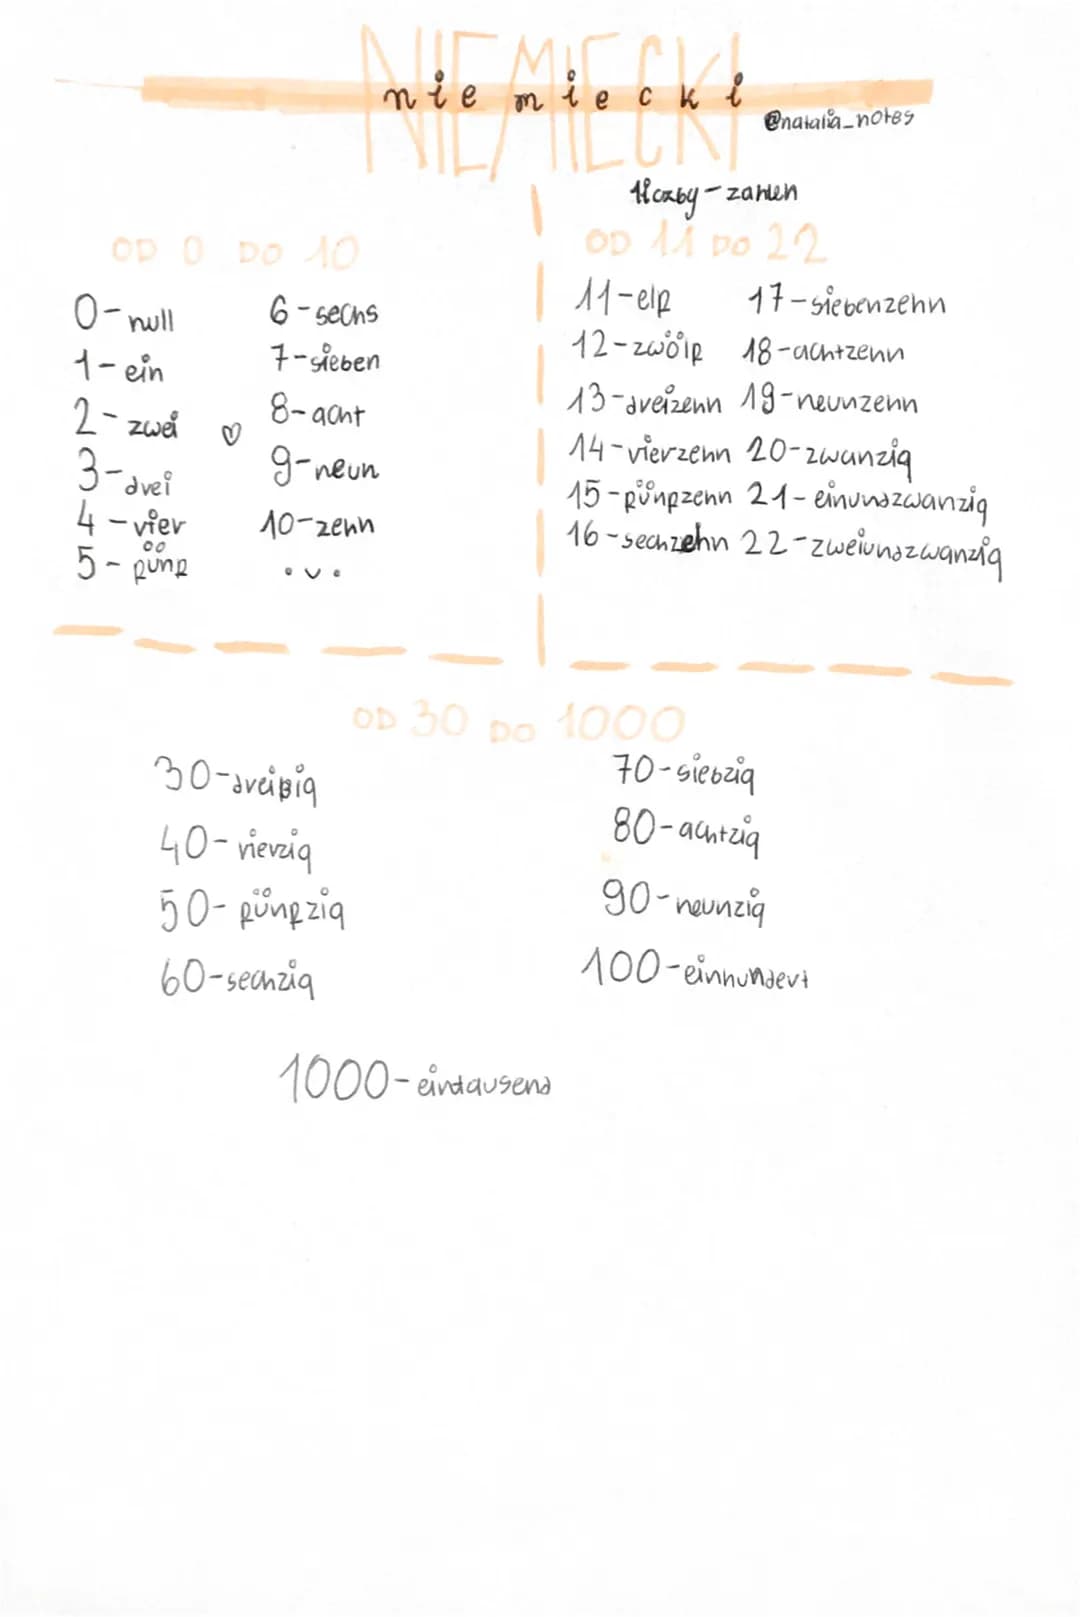 NIEMIECKI
niemiecki
@natalia_notes
liczby - zahlen
OD 0 DO 10
0 - null
1 - ein
2 - zwei
3 - drei
4 - vier
5 - fünf
6 - sechs
7 - sieben
8 - acht
9 - neun
10 - zehn
OD 11 DO 22
11 - elf
12 - zwölf
13 - dreizehn
14 - vierzehn
15 - fünfzehn
16 - sechzehn
17 - siebenzehn
18 - achtzehn
19 - neunzehn
20 - zwanzig
21 - einundzwanzig
22 - zweiundzwanzig
OD 30 DO 1000
30 - dreißig
40 - vierzig
50 - fünfzig
60 - sechzig
70 - siebzig
80 - achtzig
90 - neunzig
100 - einhundert
1000 - eintausend